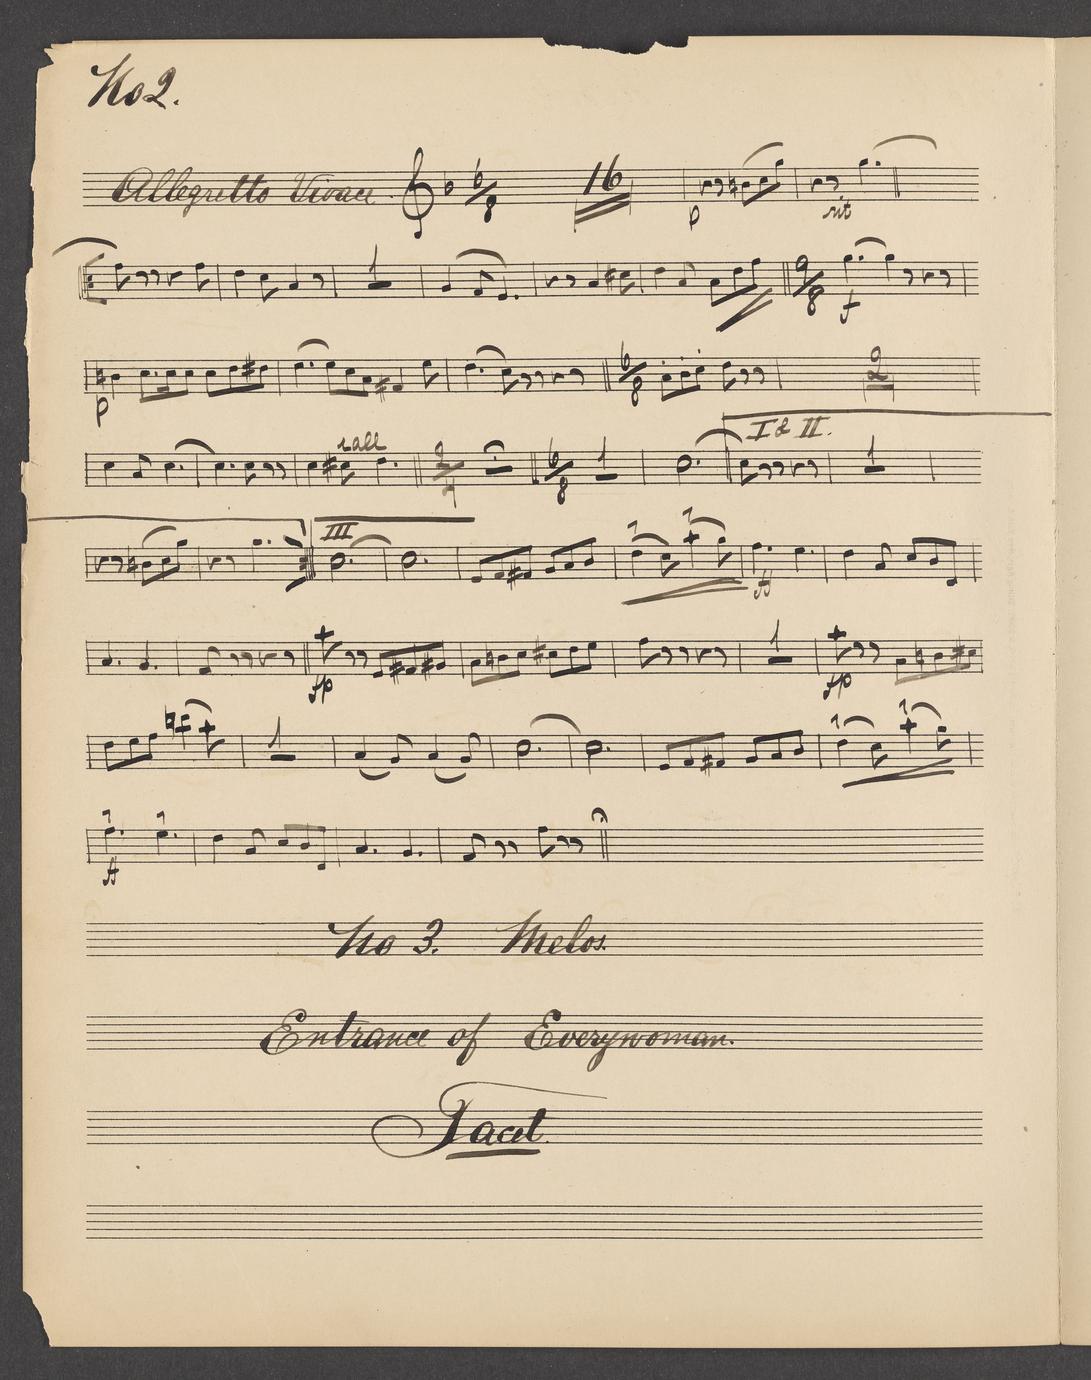 No 2.
Allegretto Vivace 6/8 16 p rit
1 9/8 f
p 6/8 2
rall 2/4 6/8 1 I & II. 1
III ff
fp 1 fp
1
ff
No 3. Melos.
Entrance of Everywoman.
Tacet.